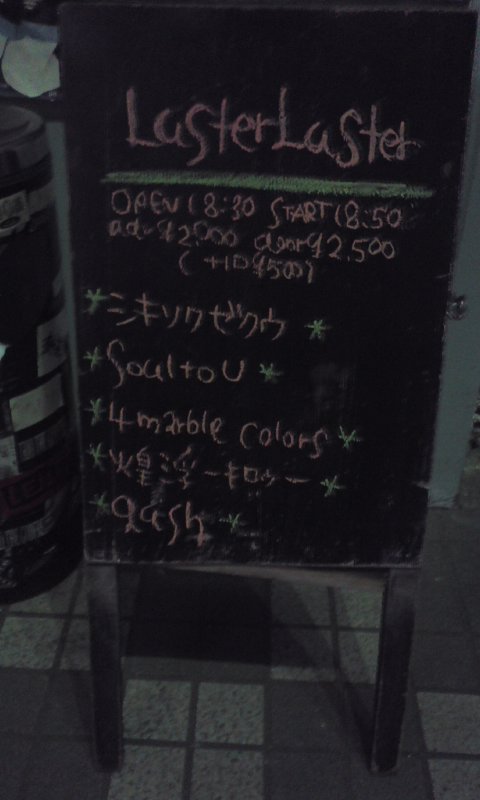 LasterLaster
OPEN 18:30 START 18:50
adv ¥2,000 door ¥2,500
(+1D ¥500)
*シキソクゼクウ*
*Soul to U*
*4 marble colors*
*煌淫ーキロゥー*
*gash*